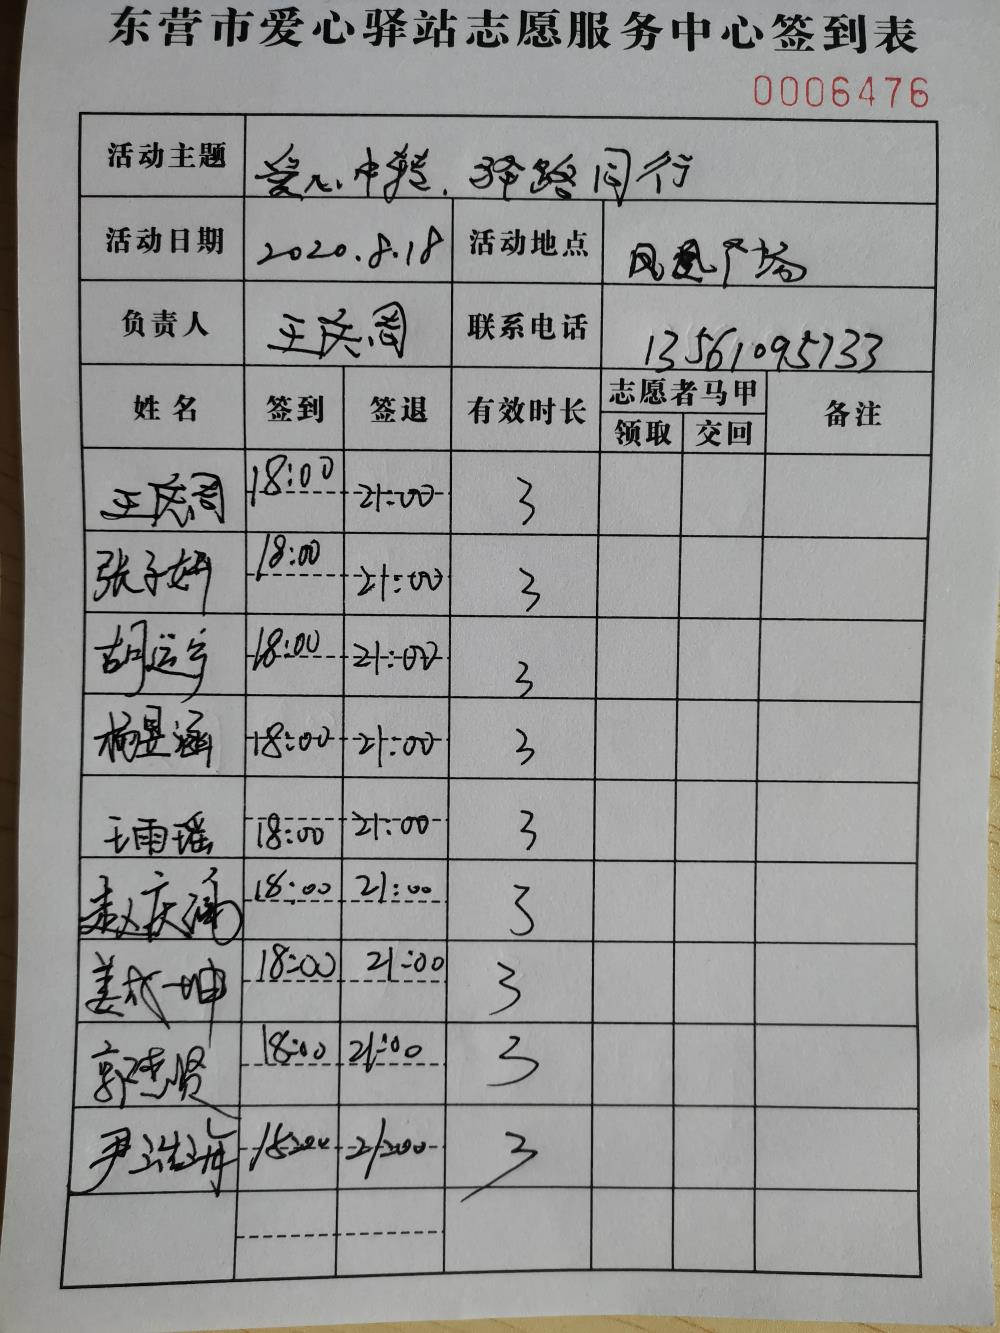 东营市爱心驿站志愿服务中心签到表
0006476
活动主题 爱心中转.驿路同行
活动日期 2020.8.18 活动地点 凤凰广场
负责人 王庆周 联系电话 13561095733
姓名 签到 签退 有效时长 志愿者马甲 备注
领取 交回
王庆周 18:00 21:00 3
张子妍 18:00 21:00 3
胡运宇 18:00 21:00 3
杨昱涵 18:00 21:00 3
王雨瑶 18:00 21:00 3
赵庆 18:00 21:00 3
姜成坤 18:00 21:00 3
郭贤 18:00 21:00 3
尹 18:00 21:00 3